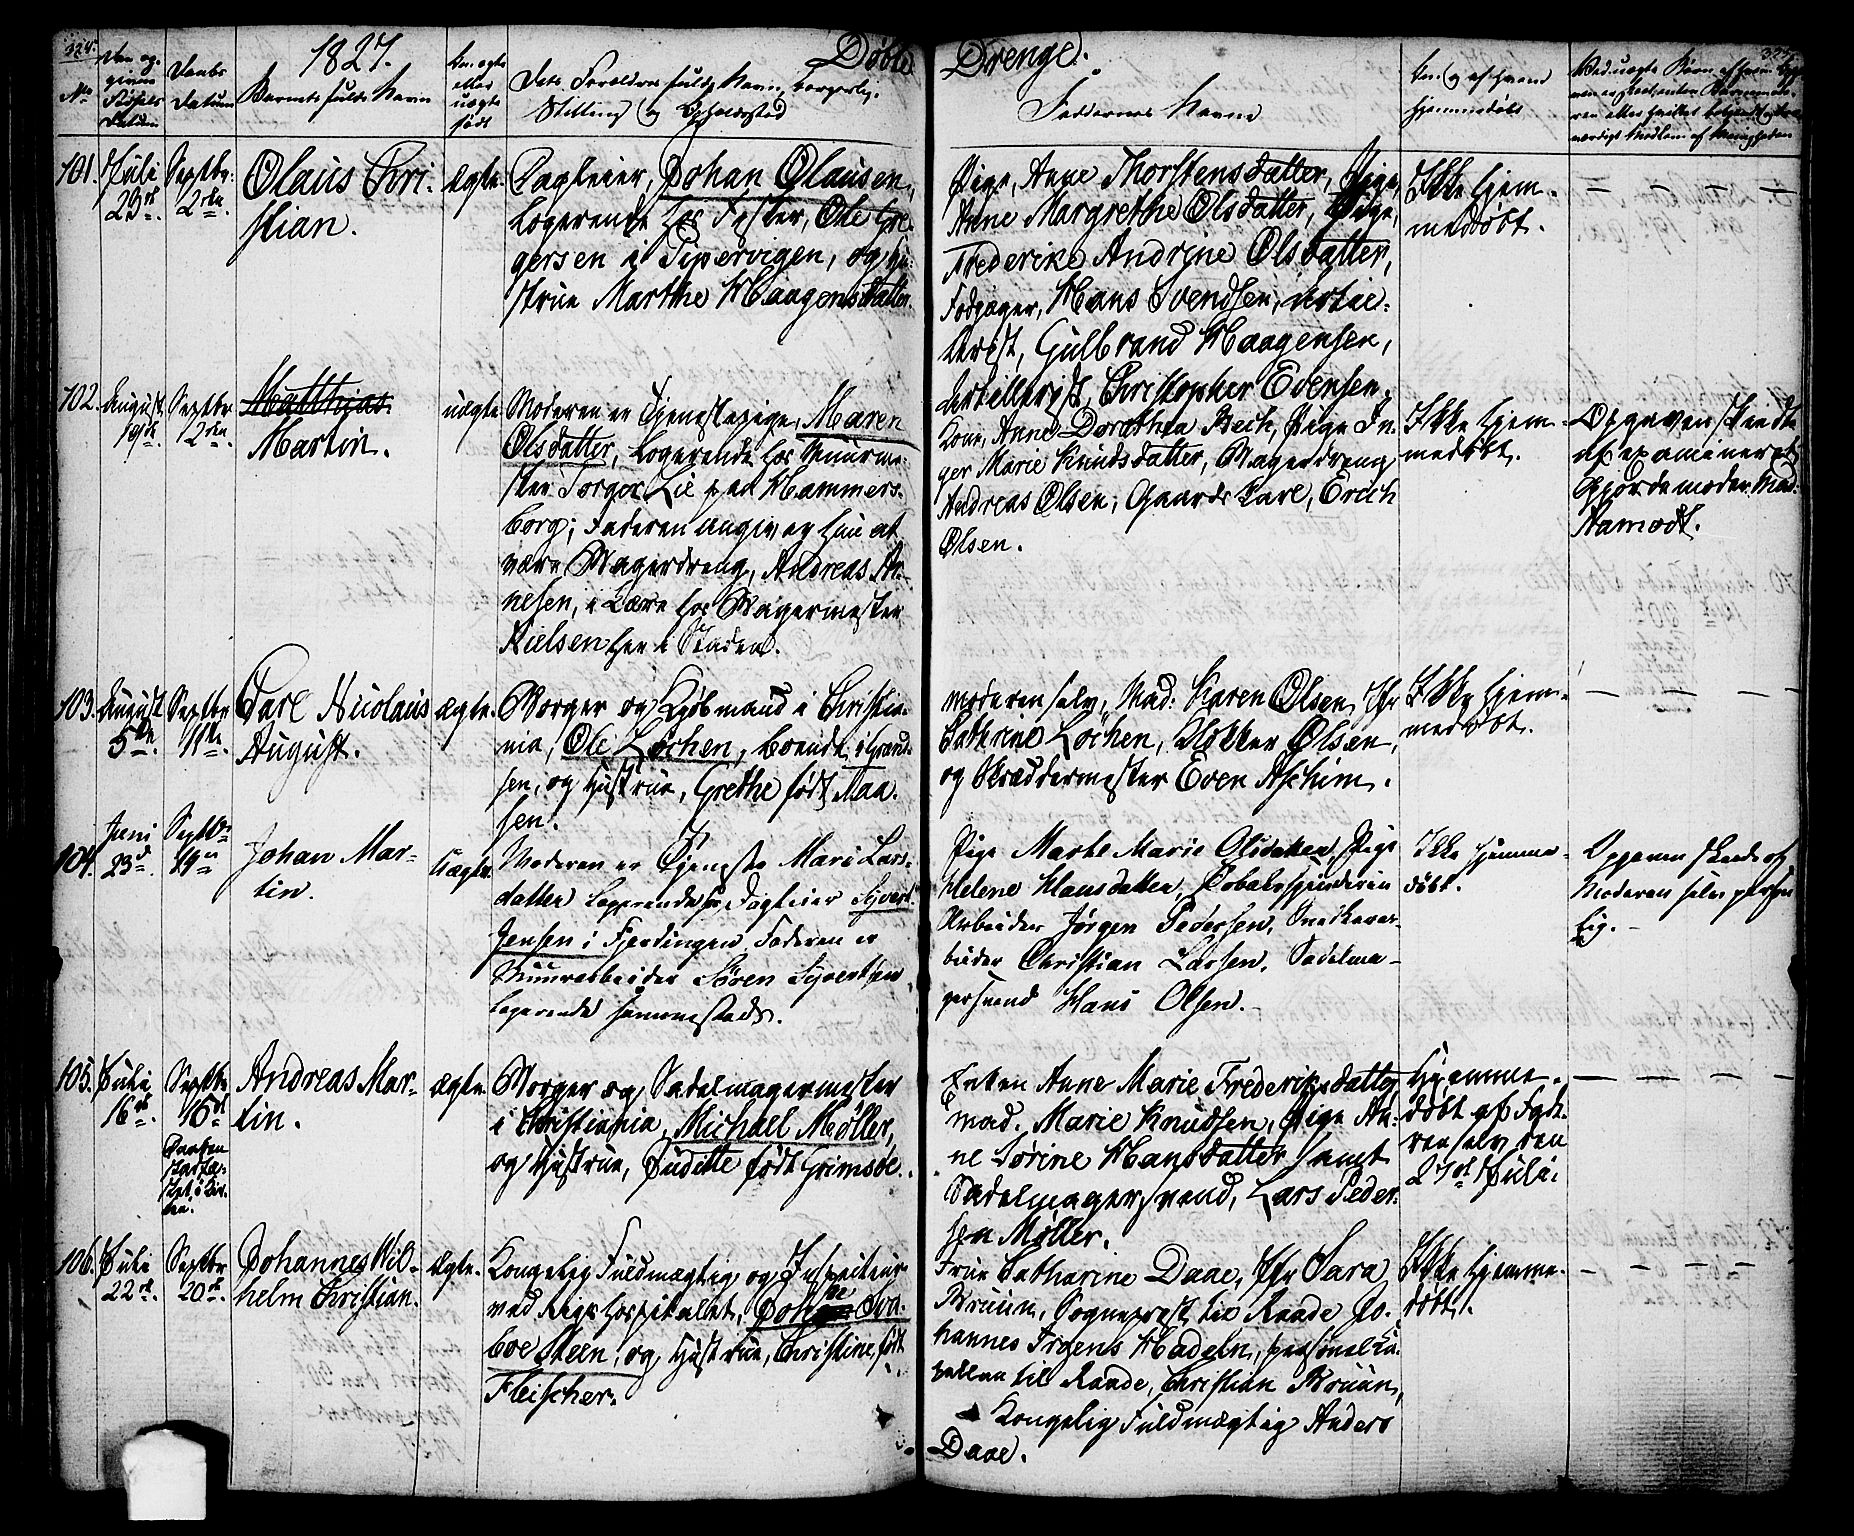 324.
1827.
Døbte Drenge.
325.
No
Den op-
givne
Fødsels
Datum
Daabs
Datum
Barnets fulde Navn
Om ægte
eller
uægte
født
Dets Forældres fulde Navn, borgerlig
Stilling og Opholdssted
Faddernes Navne
Om og af hvem
hjemmedøbt
101.
Juli
23de
Septbr.
2den
Olaus Chri-
stian.
ægte.
Dagleier, Johan Olausen,
logerende hos Fisker, Ole Gre-
gersen i Pipervigen, og Hu-
strue Marthe Haagensdatter.
Pige, Anne Thorstensdatter, Pige,
Anne Margrethe Olsdatter, Pige,
Frederike Andrine Olsdatter,
Hans Svendsen, Artille-
lerist, Gulbrand Haagensen,
Artillerist, Christopher Evensen.
Ikke hjem-
medøbt.
102.
August
19de
Septbr
2den
Matthias
Martin.
uægte
Moderen er Tjenestepige, Maren
Olsdatter, logerende hos Muurme-
ster Torger Lie paa Hammers-
borg; Faderen angiver hun at
være Bagerdreng, Andreas Ar-
nesen, i Lære hos Bagermester
Nielsen her i Staden.
Kone, Anne Dorothea Bech, Pige In-
ger Marie Knudsdatter, Bagerdreng
Andreas Olsen, Gaards Karl, Erich
Olsen.
Ikke hjem-
medøbt.
Opgaven skeedte
af examineret
Gjordemoder Mad:
Aamodt.
103.
August
5te
Septbr
11te
Carl Nicolaus
August.
ægte.
Borger og Kjøbmand i Christia-
nia, Ole Løchen, boende i Grænd-
sen, og Hustrue, Grethe født Maa-
sen.
Moderen selv, Mad: Karen Olsen, Jfr
Cathrine Löchen, Klokker Olsen,
og Skræddermester Even Aschim.
Ikke hjem-
medøbt.
104.
Juni
23d
Septbr
19n
Johan Mar-
tin.
Uægte
Moderen er Tjeneste Mari Lars-
datter logerende hos Dagleier Syvert
Jensen i Fjerdingen. Faderen er
Muurarbeider Søren Syvertsen
logerende sammesteds.
Pige Marte Marie Olsdatter, Pige
Helene Hansdatter, Tobaksspinderie
Arbeider Jørgen Pedersen, Snedkerar-
beider Christian Larsen, Sadelma-
gersvend Hans Olsen.
Ikke hjemme-
døbt.
Opgaven skeede af
Moderen selv person
lig.
105.
Juli
16de
Septbr
16de
Daaben
stadfæ-
stet i Kir-
ken.
Andreas Mar-
tin.
ægte.
Borger og Sadelmagermester
i Christiania, Michael Møller,
og Hustrue, Juditte født Grimsøe.
Enken Anne Marie Frederiksdatter
Mad. Marie Knudsen, Pige An-
ne Sørine Hansdatter samt
Sadelmagersvend, Lars Peder-
sen Møller.
Hjemme-
døbt af Fade-
ren selv den
27de Juli.
106.
Juli
22de
Septbr
20de
Johannes Wil-
helm Christian.
ægte.
Kongelig Fuldmægtig og Inspecteur
ved Rigs Hospitalet, Johan Sva-
boe Steen, og Hustrue, Christine, født
Fleischer.
Frue Catharine Daae, Jfr Sara
Bruun, Sogneprest til Raade Jo-
hannes Irgens Hadeln, personel Ca-
pellan til Raade, Christian Bruun,
Kongelig Fuldmægtig Anders
Daae.
Ikke hjemme-
døbt.